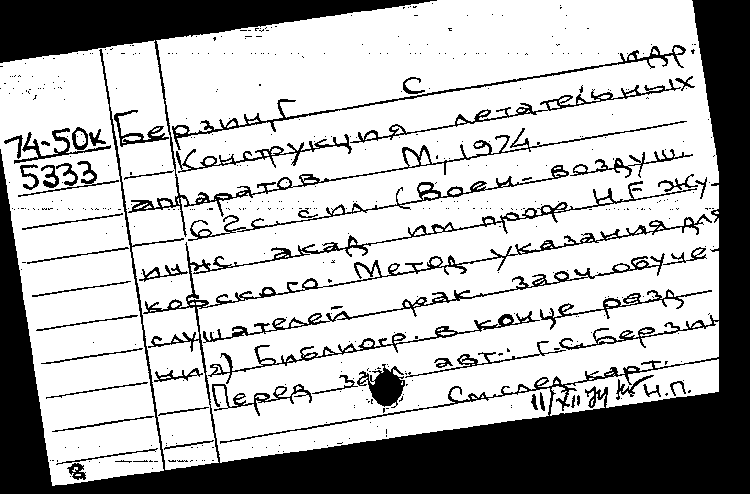 74-50к
5333
Берзин, Г С и др.
Конструкция летательных
аппаратов. М., 1974.
62с. с ил. (Воен-воздуш.
инж. акад им проф Н.Е Жу-
ковского. Метод указания для
слушателей фак. заоч. обуче-
ния) Библиогр. в конце разд
Перед загл. авт.: Г.С. Берзин
См. след. карт.
Н.П.
8